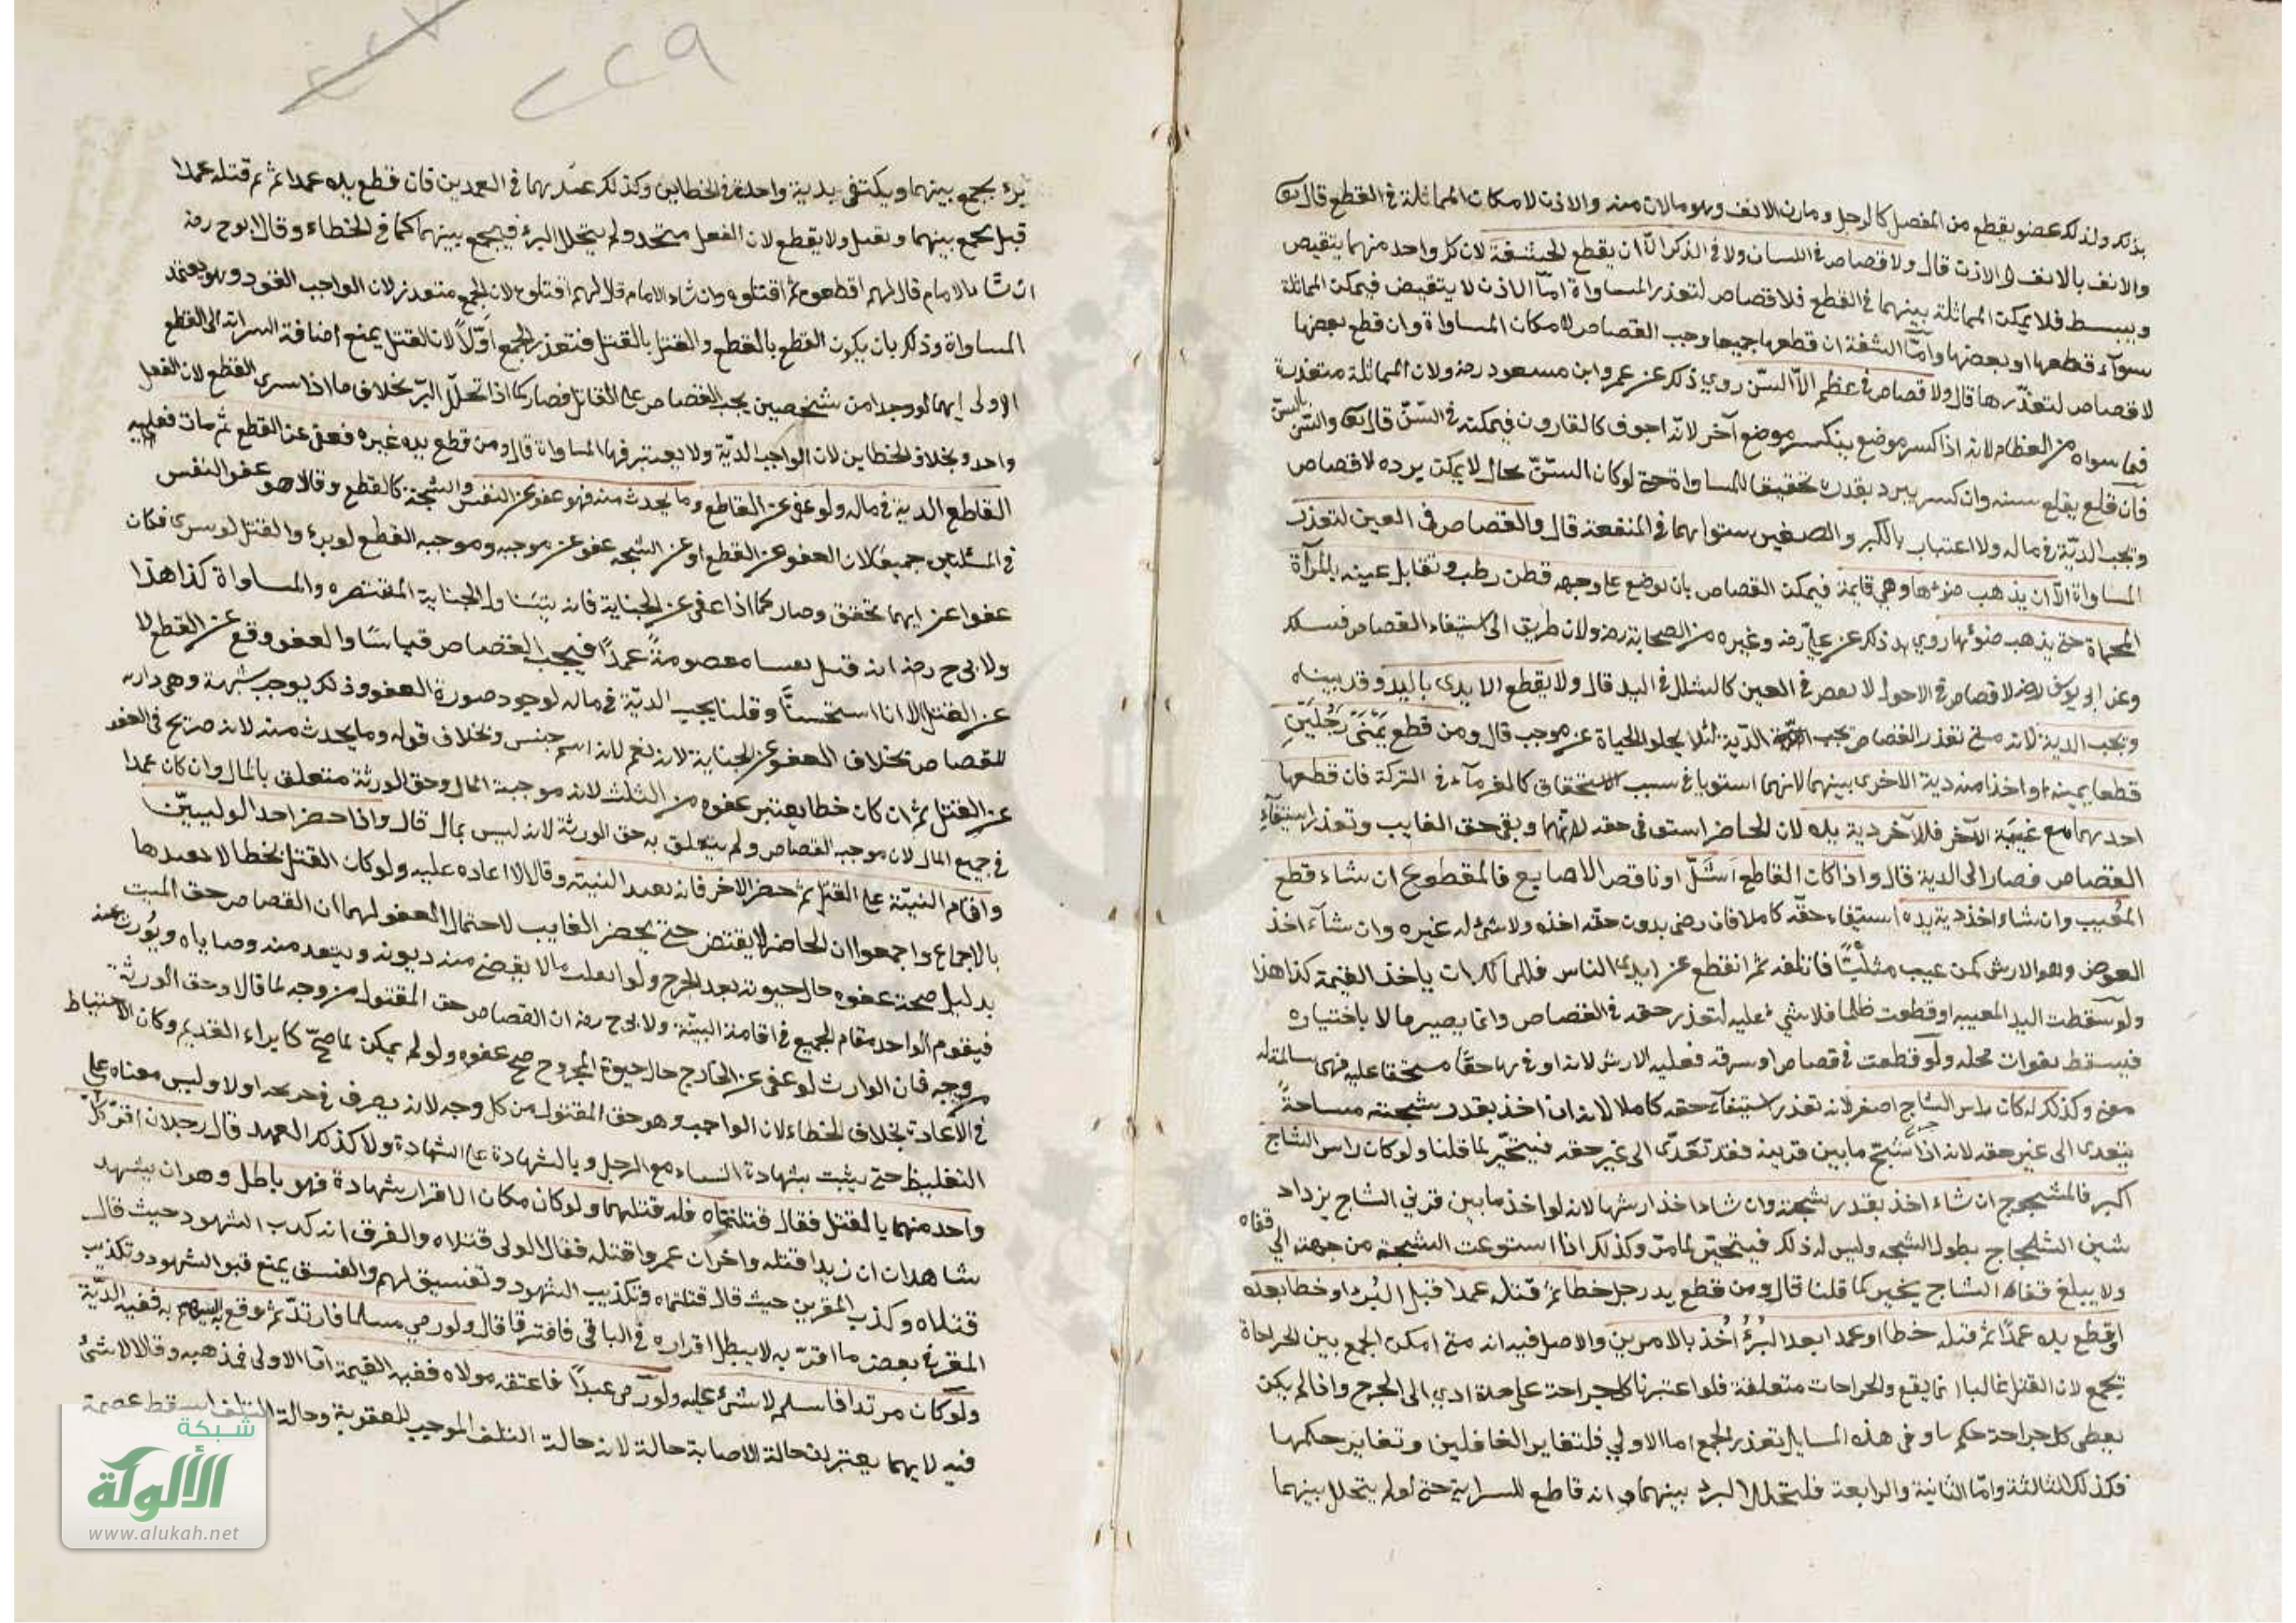 بذلك ولذلك عضو يقطع من المفصل كالرجل ومارن الانف وهو مالان منه والاذن لامكان المماثلة في القطع قال تعه
والانف بالانف والاذن قال ولا قصاص في اللسان ولا في الذكر الا ان يقطع الحشفة لان كل واحد منهما ينقبض
وينبسط فلا يمكن المماثلة بينهما في القطع فلا قصاص لتعذر المساواة اما الاذن لا ينقبض فيمكن المماثلة
سوآء قطعها او بعضها واما الشفة ان قطعها جميعا وجب القصاص لامكان المساواة وان قطع بعضها
لا قصاص لتعذرها قال ولا قصاص في عظم الا السن روي ذلك عن عمر وابن مسعود رضه ولان المماثلة متعذرة
فيما سواه من العظام لانه اذا كسر موضع ينكسر موضع آخر لانه اجوف كالقارون فيمكنه في السن قال تعه والسن بالسن
فان قلع يقلع سنه وان كسر يبرد بقدره تحقيقا للمساواة حتى لو كان السن بحال لا يمكن برده لا قصاص
وتجب الدية في ماله ولا اعتبار بالكبر والصغر استوائهما في المنفعة قال والقصاص في العين لتعذر
المساواة الا ان يذهب ضوئها وهي قايمة فيمكن القصاص بان يوضع على وجهه قطن رطب وتقابل عينه بالمرآة
المحماة حتى يذهب ضوئها روي ذلك عن علي رضه وغيره من الصحابة رضه ولان طريق الى استيفاء القصاص فيسلك
وعن ابي يوسف لا قصاص في الاحول لا بعص في العين كالشلل في اليد قال ولا يقطع الايدي باليد وقد بيناه
وتجب الدية لانه متى تعذر القصاص تجب الدية لئلا يخلو الحياة عن موجب قال ومن قطع يمنى رجلين
قطعا يمينه او اخذا منه دية الاخرى بينهما لانهما استويا في سبب الاستحقاق كالغرمآء في التركة فان قطعها
احدهما مع غيبة الآخر فللآخر دية يده لان الحاضر استوفى حقه وبقي حق الغايب وتعذر استيفآء
القصاص فصار الى الدية قال واذا كان القاطع اشل او ناقص الاصابع فالمقطوع ان شاء قطع
المعيب وان شاء اخذ دية يده استيفاء حقه كاملا فان رضي بدون حقه اخذه ولا شئ له غيره وان شآء اخذ
العوض وهو الارش كمن عيب مثليا فاتلفه ثم انقطع عن ايدي الناس ياخذ القيمة كذا هذا
ولو سقطت اليد المعيبه او قطعت ظلما فلا شئ عليه لتعذر حقه في القصاص وانما يصير مالا باختياره
فيسقط بفوات محله ولو قطعت في قصاص او سرقه فعليه الارش لانه اوفى بها حقا مستحقا عليه فهي سالمة له
معنى وكذلك لو كان راس الشاج اصغر لانه تعذر استيفآء حقه كاملا لانه ان اخذ بقدر شجته مساحة
يتعدى الى غير حقه لانه اذا شج ما بين قرنيه فقد تعدى الى غير حقه فيتخير لما قلنا ولو كان راس الشاج
اكبر فالمشجوج ان شاء اخذ بقدر شجته وان شاء اخذ ارشها لانه لو اخذ ما بين قرني الشاج يزداد
شين الشاج بطول الشجه وليس له ذلك فيتخير لما مر وكذلك اذا استوعت الشجة من جبهته الى قفاه
ولا يبلغ قفاه الشاج يخير كما قلنا قال ومن قطع يد رجل خطا ثم قتله عمدا قبل البرء او خطا بعده
او قطع يده عمدا ثم قتله خطا او عمدا بعد البرء أخذ بالامرين والاصل فيه انه متى امكن الجمع بين الجراحاة
يجمع لان القتل غالبا انما يقع والجراحات متعلقة فلو اعتبرنا كل جراحة على حدة ادي الى الحرج واذا لم يكن
يعطى كل جراحة حكمها وفي هذه المسايل تعذر الجمع اما الاولي فلتغاير الفاعلين وتغاير حكمها
فكذلك الثالثة واما الثانية والرابعة فلتخلل البرء بينهما وانه قاطع للسراية حتى لو لم يتخلل بينهما
برء يجمع بينهما ويكتفى بدية واحدة في الخطاين وكذلك عندهما في العمدين فان قطع يده عمدا ثم قتله عمدا
قبل يجمع بينهما ويقتل ولا يقطع لان الفعل متحد ولم يتخلل البرء فيجمع بينهما كما في الخطاء وقال ابو ح رضه
ان شاء الامام قال لهم اقطعوه ثم اقتلوه وان شاء الامام قال لهم اقتلوه لان الجمع متعذر لان الواجب القود وهو يعتمد
المساواة وذلك بان يكون القطع بالقطع والقتل بالقتل فتعذر الجمع اولا لان القتل يمنع اضافة السراية الى القطع
الاولى انهما لو وجدا من شخصين يجب القصاص على القاتل فصار كما اذا تخلل البرء بخلاف ما اذا سرى القطع لان الفعل
واحد وبخلاف الخطاين لان الواجب الدية ولا يعتبر فيها المساواة قال ومن قطع يد غيره فعفى عن القطع ثم مات فعليه
القاطع الدية في ماله ولو عفى عن القاطع وما يحدث منه فهو عفو عن النفس والشجة كالقطع وقالا هو عفو النفس
في المسئلتين جميعا لان العفو عن القطع او عن الشجه عفو عن موجبه وموجبه القطع لو برء والقتل لو سرى فكان
عفوا عن ايهما تحقق وصار كما اذا عفى عن الجناية فانه يتناول الجناية المقتصره والمساواة كذا هذا
ولابي ح رضه انه قتل نفسا معصومة عمدا فيجب القصاص قياسا والعفو وقع عن القطع لا
عن القتل الا انا استحسنا وقلنا يجب الدية في ماله لوجود صورة العفو وذلك يوجب شبهة وهي دارئه
للقصاص بخلاف العفو عن الجناية لانه نعم لانه اسم جنس وبخلاف قوله وما يحدث منه لانه صريح في العفو
عن القتل ثم ان كان خطا يعتبر عفوه من الثلث لانه موجبه المال وحق الورثة متعلق بالمال وان كان عمدا
في جميع المال لان موجبه القصاص ولم يتعلق به حق الورثة لانه ليس بمال قال واذا حضر احد الوليين
واقام البينة على القتل ثم حضر الاخر فانه يعيد البينه وقالا لا اعاده عليه ولو كان القتل خطا لا يعيدها
بالاجماع واجمعوا ان الحاضر لا يقتص حتى يحضر الغايب لاحتمال العفو لهما ان القصاص حق الميت
بدليل صحة عفوه حال حيوته بعد الجرح ولو انقلب مالا يقضى منه ديونه وينفذ منه وصاياه ويورث عنه
فيقوم الواحد مقام الجميع في اقامة البينة ولابي ح رضه ان القصاص حق المقتول من وجه لما قالا وحق الورثة
من وجه فان الوارث لو عفى عن الجارح حال حيوة المجروح صح عفوه ولو لم يمكن لما صح كابراء الغريم وكان الاحتياط
في الاعادة بخلاف الخطاء لان الواجب وهو حق المقتول من كل وجه اولا وليس معناه على
التغليظ حتى يثبت بشهادة النساء مع الرجل وبالشهادة على الشهادة ولا كذلك العمد قال رجلان اقر كل
واحد منهما بالقتل فقال قتلتماه فله قتلهما ولو كان مكان الاقرار شهادة فهو باطل وهو ان يشهد
شاهدان ان زيدا قتله واخران عمروا قتله فقال الولى قتلاه والفرق انه كذب الشهود حيث قال
قتلاه وكذب المقرين حيث قال قتلتماه وتكذيب الشهود وتفسيق لهم والفسق يمنع قبول الشهود وتكذيب
المقر في بعض ما اقر به لا يبطل اقراره في الباقي فافترقا قال ولو رمي مسلما فارتد ثم وقع به السهم ففيه الدية
ولو كان مرتدا فاسلم لا شئ عليه ولو رمى عبدا فاعتقه مولاه ففيه القيمة اما الاولى فمذهبه وقالا لا شئ
فيه لانهما يعتبران حالة الاصابة حالة لانه حالة التلف الموجب للعقوبة وحالة التلف اسقط عصمة
شبكة
الألوكة
www.alukah.net